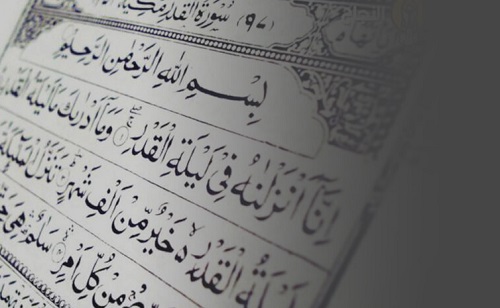 (٩٧) سُوْرَةُ الْقَدْرِ مَكِّيَّةٌ
بِسْمِ اللّٰهِ الرَّحْمٰنِ الرَّحِيْمِ
اِنَّاۤ اَنْزَلْنٰهُ فِیْ لَیْلَةِ الْقَدْرِ ۝١ وَمَاۤ اَدْرٰىكَ مَا لَیْلَةُ
لَیْلَةُ الْقَدْرِ خَیْرٌ مِّنْ اَلْفِ شَهْرٍ تَنَزَّلُ
مِّنْ كُلِّ اَمْرٍ سَلٰمٌ هِیَ